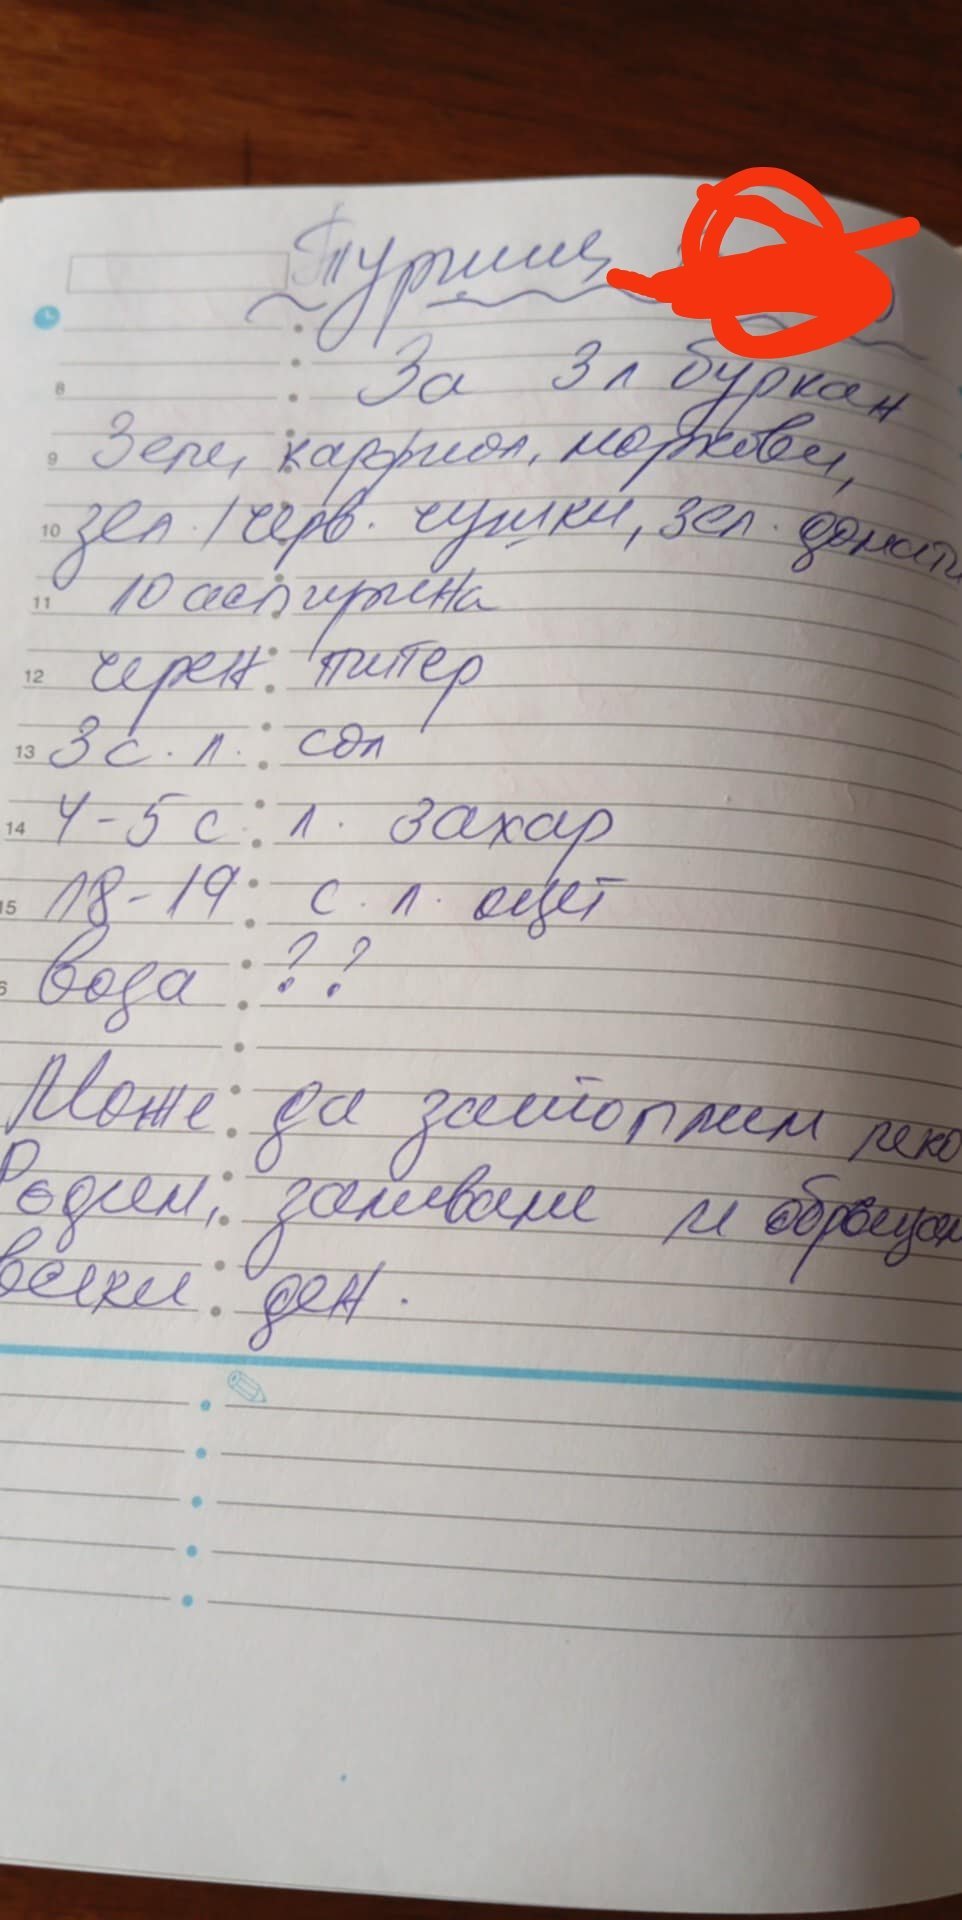 Туршия
За 3 л буркан
Зеле, карфиол, моркови,
зел. / черв. чушки, зел. домати
8
9
10
10 аспирина
11
черен пипер
12
3 с. л. сол
13
4-5 с. л. захар
14
18-19 с. л. оцет
15
вода ??
6
Може да затоплим леко
Редим, заливаме и обръщаме
всеки ден.